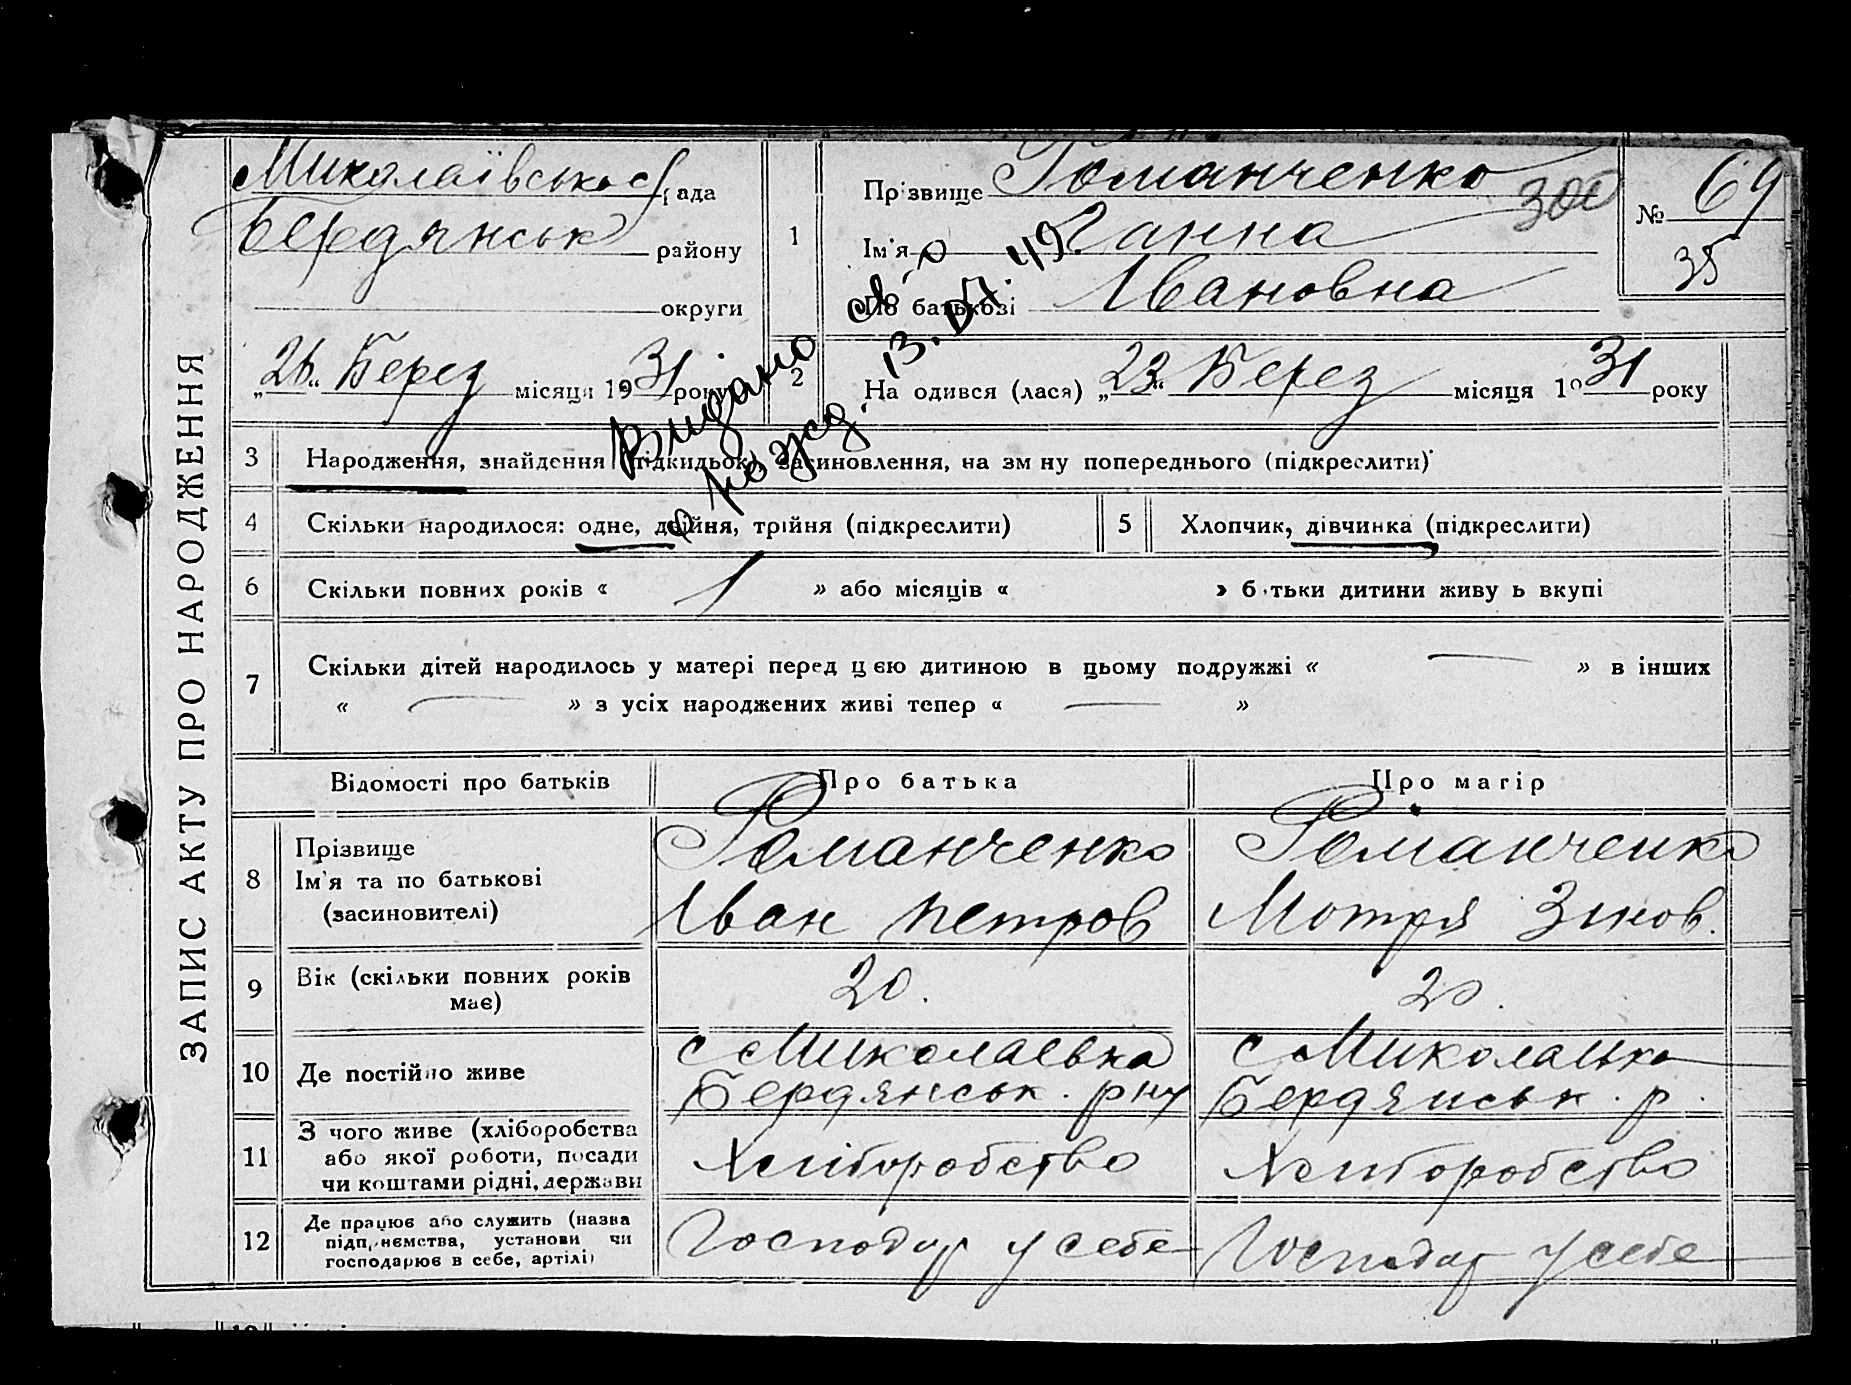 ЗАПИС АКТУ ПРО НАРОДЖЕННЯ
Миколаївська с/рада
Бердянськ району
округи
1
Прізвище Романченко
Ім'я Ганна
По батькові Івановна
300
№ 69
35
„26“ Берез місяця 1931 року
2
На одився (лася) „23“ Берез місяця 1931 року
Видано св-о
о рожд. 13.07.49
3 Народження, знайдення (підкидьок), засиновлення, на зм ну попереднього (підкреслити)
4 Скільки народилося: одне, двійня, трійня (підкреслити)
5 Хлопчик, дівчинка (підкреслити)
6 Скільки повних років « 1 » або місяців « » б тьки дитини живу ь вкупі
7 Скільки дітей народилось у матері перед цією дитиною в цьому подружжі « — » в інших
« — » з усіх народжених живі тепер « — »
Відомості про батьків Про батька Про матір
8 Прізвище
Ім'я та по батькові
(засиновителі)
Романченко
Іван Петров
Романченко
Мотря Зінов.
9 Вік (скільки повних років
має)
20.
20.
10 Де постійно живе
с Миколаевка
Бердянськ. рну
с Миколаівка
Бердянськ. р.
11 З чого живе (хліборобства
або якої роботи, посади
чи коштами рідні, держави
Хліборобство
Хліборобство
12 Де працює або служить (назва
підприємства, установи чи
господарює в себе, артілі)
Господар у себе
Господар у себе